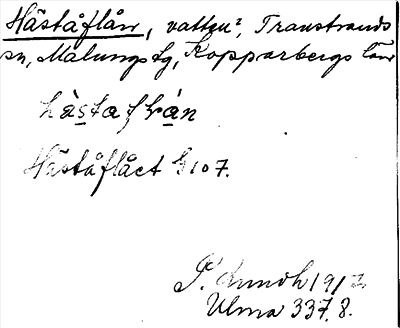 Håståflån, vatten?, Transtrands
sn, Malungs tg, Kopparbergs län
hästafrán
Håståflåct G 107.
P. 1912
Ulma 337.8.